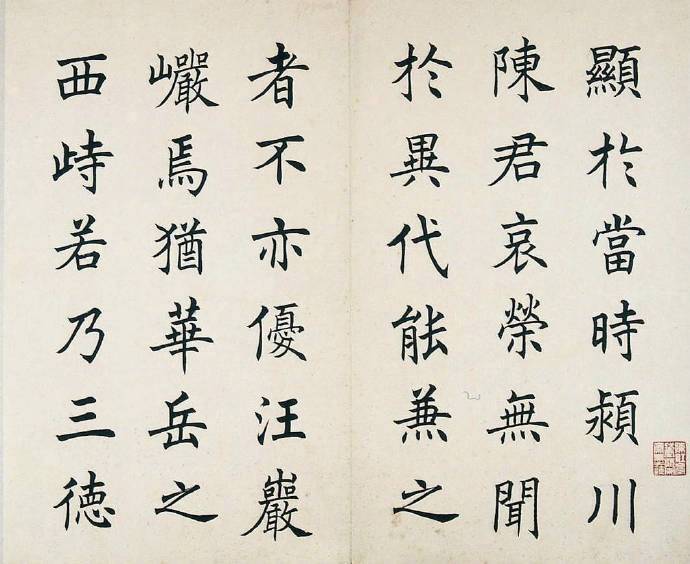 顯於當時潁川
陳君哀榮無聞
於異代能兼之
者不亦優汪巖
巗焉猶華岳之
西峙若乃三徳